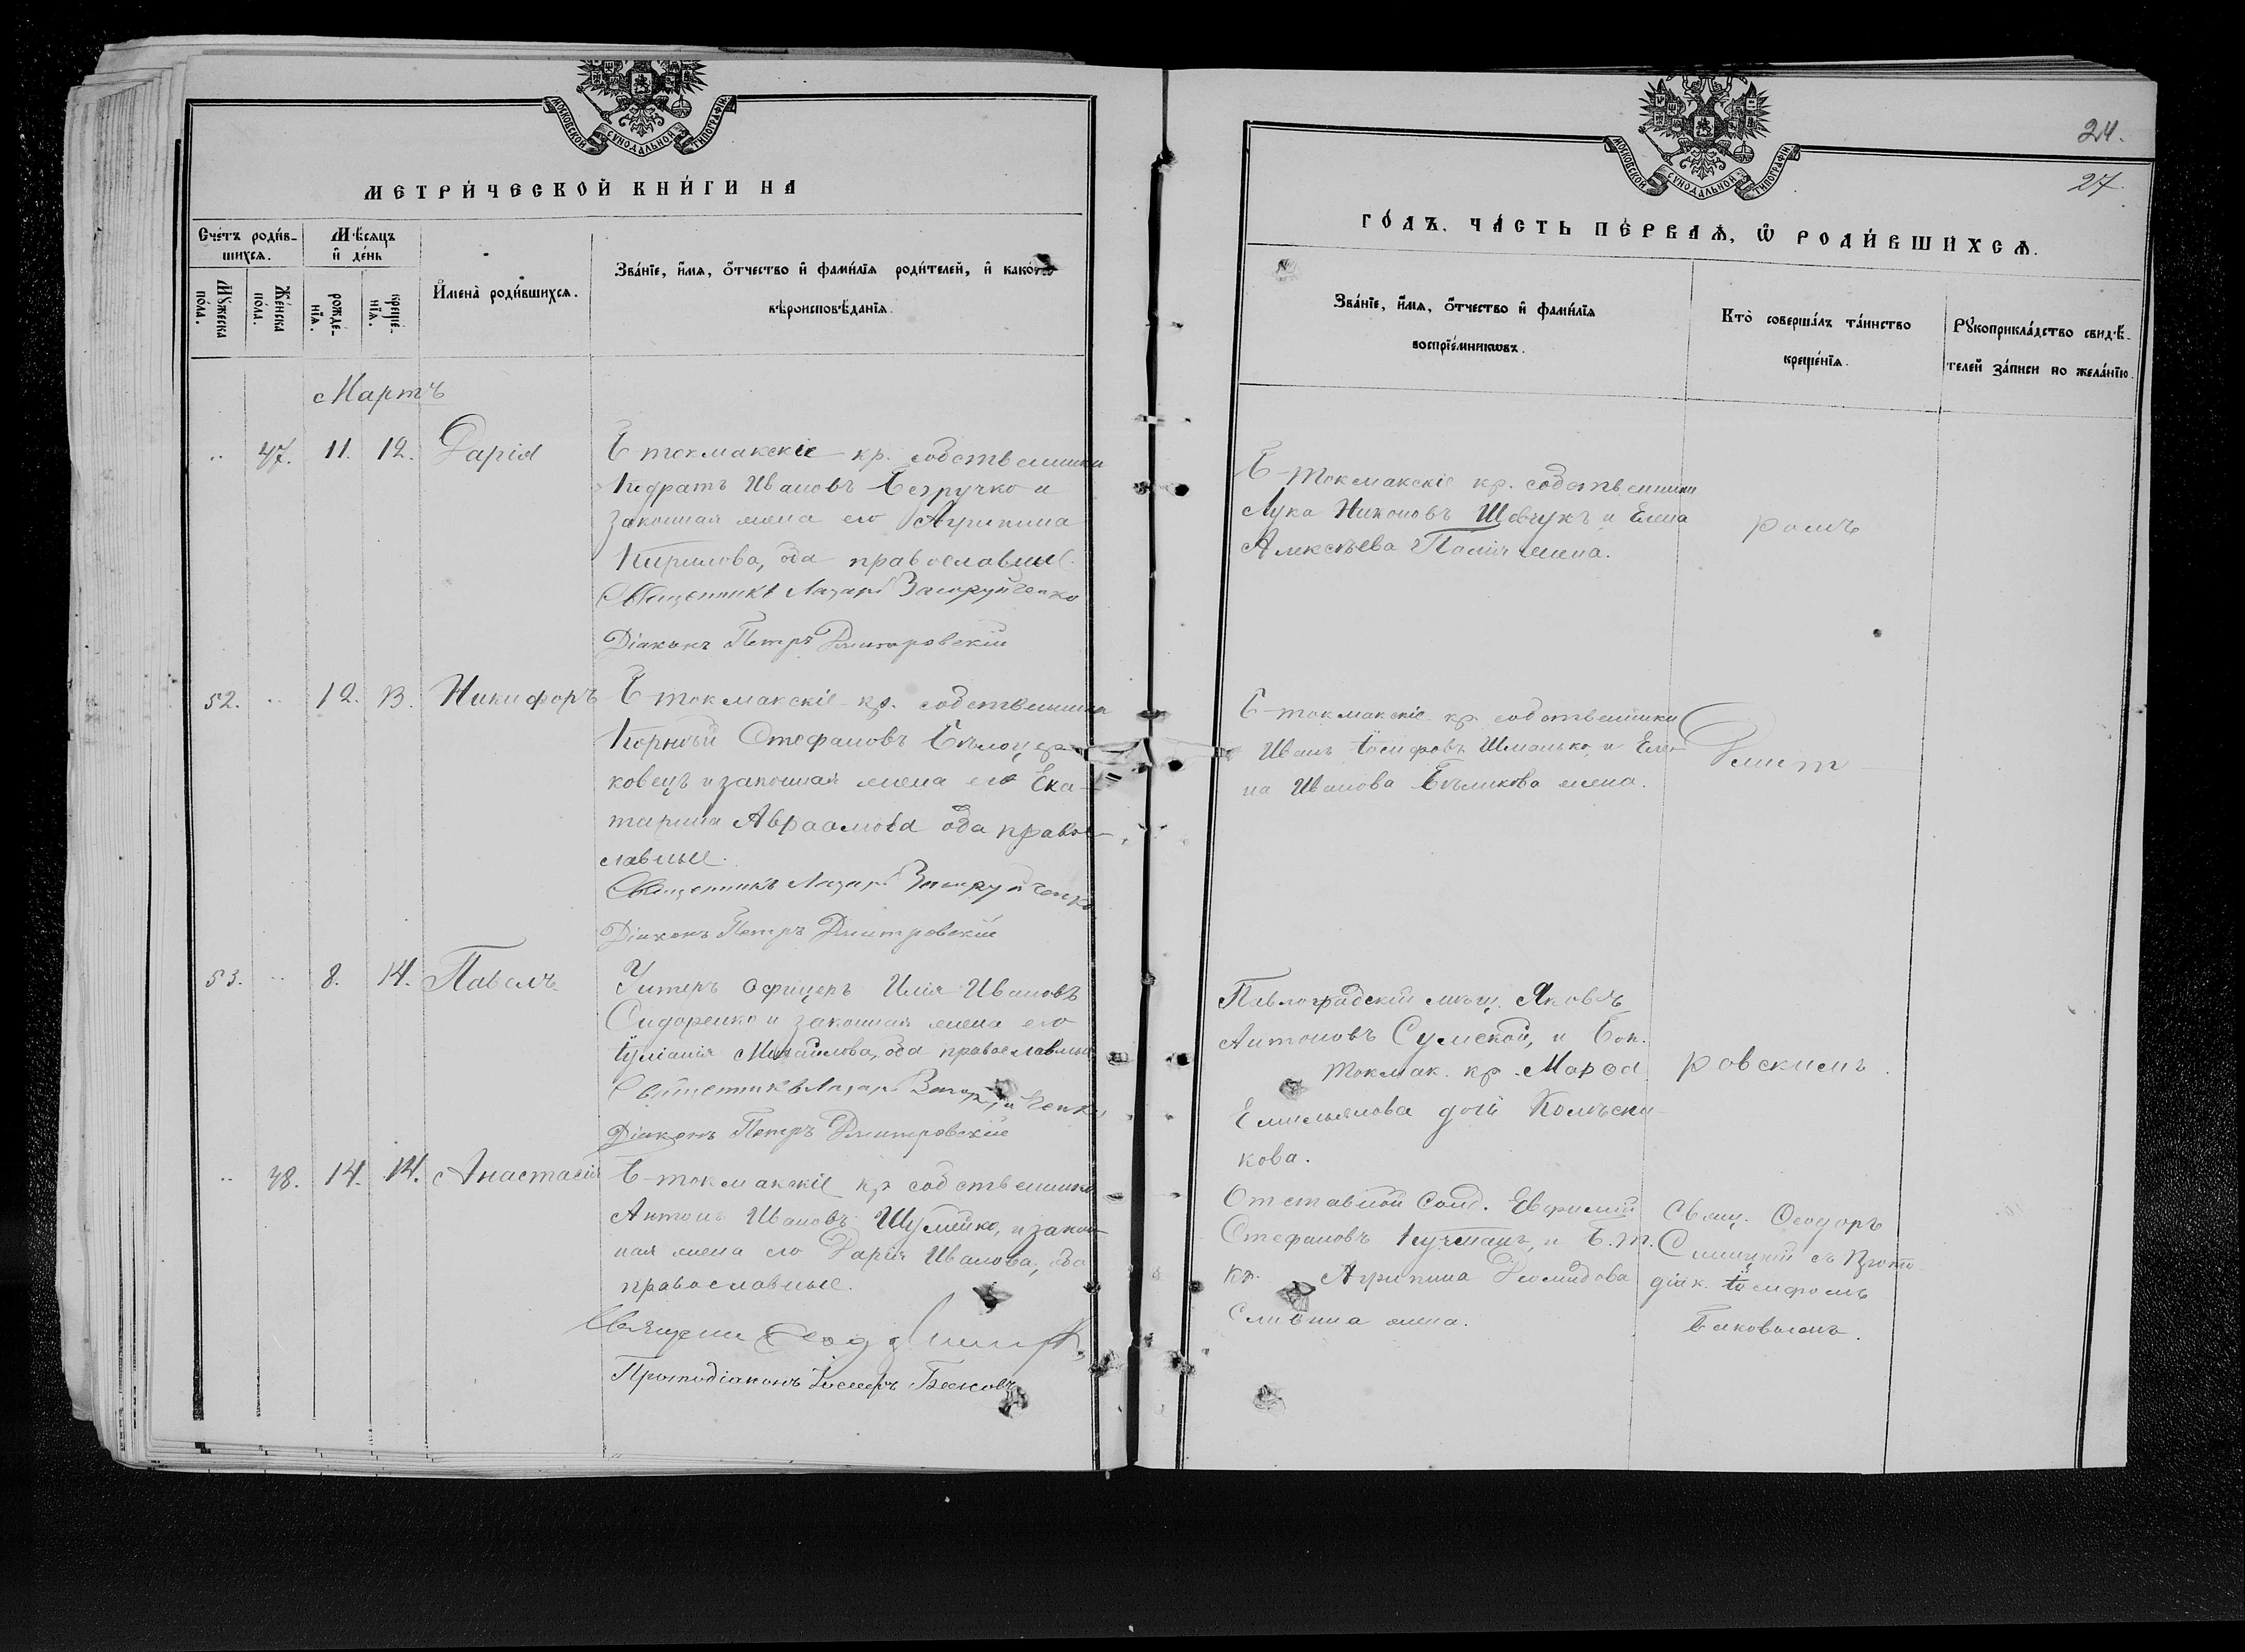 МОСКОВСКОЙ СУНОДАЛЬНОЙ ТИПОГРАФІИ
МЕТРИ́ЧЕСКОЙ КНИ́ГИ НА
Сче́тъ роди́в-
шихся.
Мѣ́сяцъ
и҆ де́нь
Му́жеска
по́ла.
Же́нска
по́ла.
рожде́-
нїя.
креще́-
нїя.
И҆мена̀ роди́вшихся.
Зва́нїе, и҆́мя, ѻ҆́тчество и҆ фами́лїя роди́телей, и҆ како́гѡ
вѣроисповѣ́данїя.
Мартъ
.. 47. 11. 12. Дарія
Б-токмакскіе кр. собственники
Кодратъ Ивановъ Безручко и
законная жена его Агрипина
Кирилова, оба православные.
Священникъ Лазарь
Діаконъ Петръ Дмитровскій
52. .. 12. 13. Никифоръ
Б-токмакскіе кр. собственники
Корнѣй Стефановъ Бѣлоцер-
ковецъ и законная жена его Ека-
тарина Авраамова оба право-
славные.
Священникъ Лазарь
Діаконъ Петръ Дмитровскій
53. .. 8. 14. Павелъ
Унтеръ офицеръ Илія Ивановъ
Сидоренко и законная жена его
Іуліанія Михайлова, оба православные
Священникъ Лазарь
Діаконъ Петръ Дмитровскій
.. 48. 14. 14. Анастасія
Б-токмакскіе кр собственники
Антонъ Ивановъ Шумейко, и закон-
ная жена его Дарія Иванова, оба
православные.
Протодіаконъ Іосифъ Баковъ
МОСКОВСКОЙ СУНОДАЛЬНОЙ ТИПОГРАФІИ
24.
27.
ГО́ДЪ. ЧА́СТЬ ПЕ́РВАЯ, Ѡ҆ РОДИ́ВШИХСЯ.
Зва́нїе, и҆́мя, ѻ҆́тчество и҆ фами́лїя
воспрїе́мникѡвъ.
Кто̀ соверша́лъ та́инство
креще́нїя.
Рꙋкоприкла́дство свидѣ́-
телей за́писи по жела́нїю.
Б-токмакскіе кр. собственники
Лука Никоновъ Шевчукъ и Елена
Алексѣева жена.
ромъ
Б-токмакскіе кр собственники
Иванъ Іосифовъ Шманько, и Еле-
на Иванова Бѣликова жена.
Дмит
Павлоградскій мѣщ. Яковъ
Антоновъ Сумской, и Бол.
Токмак. кр. Марѳа
Емильянова дочь Колѣсни-
кова.
ровскимъ
Отставной Солд. Евфимій
Стефановъ Кучманъ, и Б. Т.
Кр. Агрипина Діомидова
Сливина жена.
Свящ. Ѳеодоръ
съ Прото-
діак. Іосифомъ
Баковымъ.